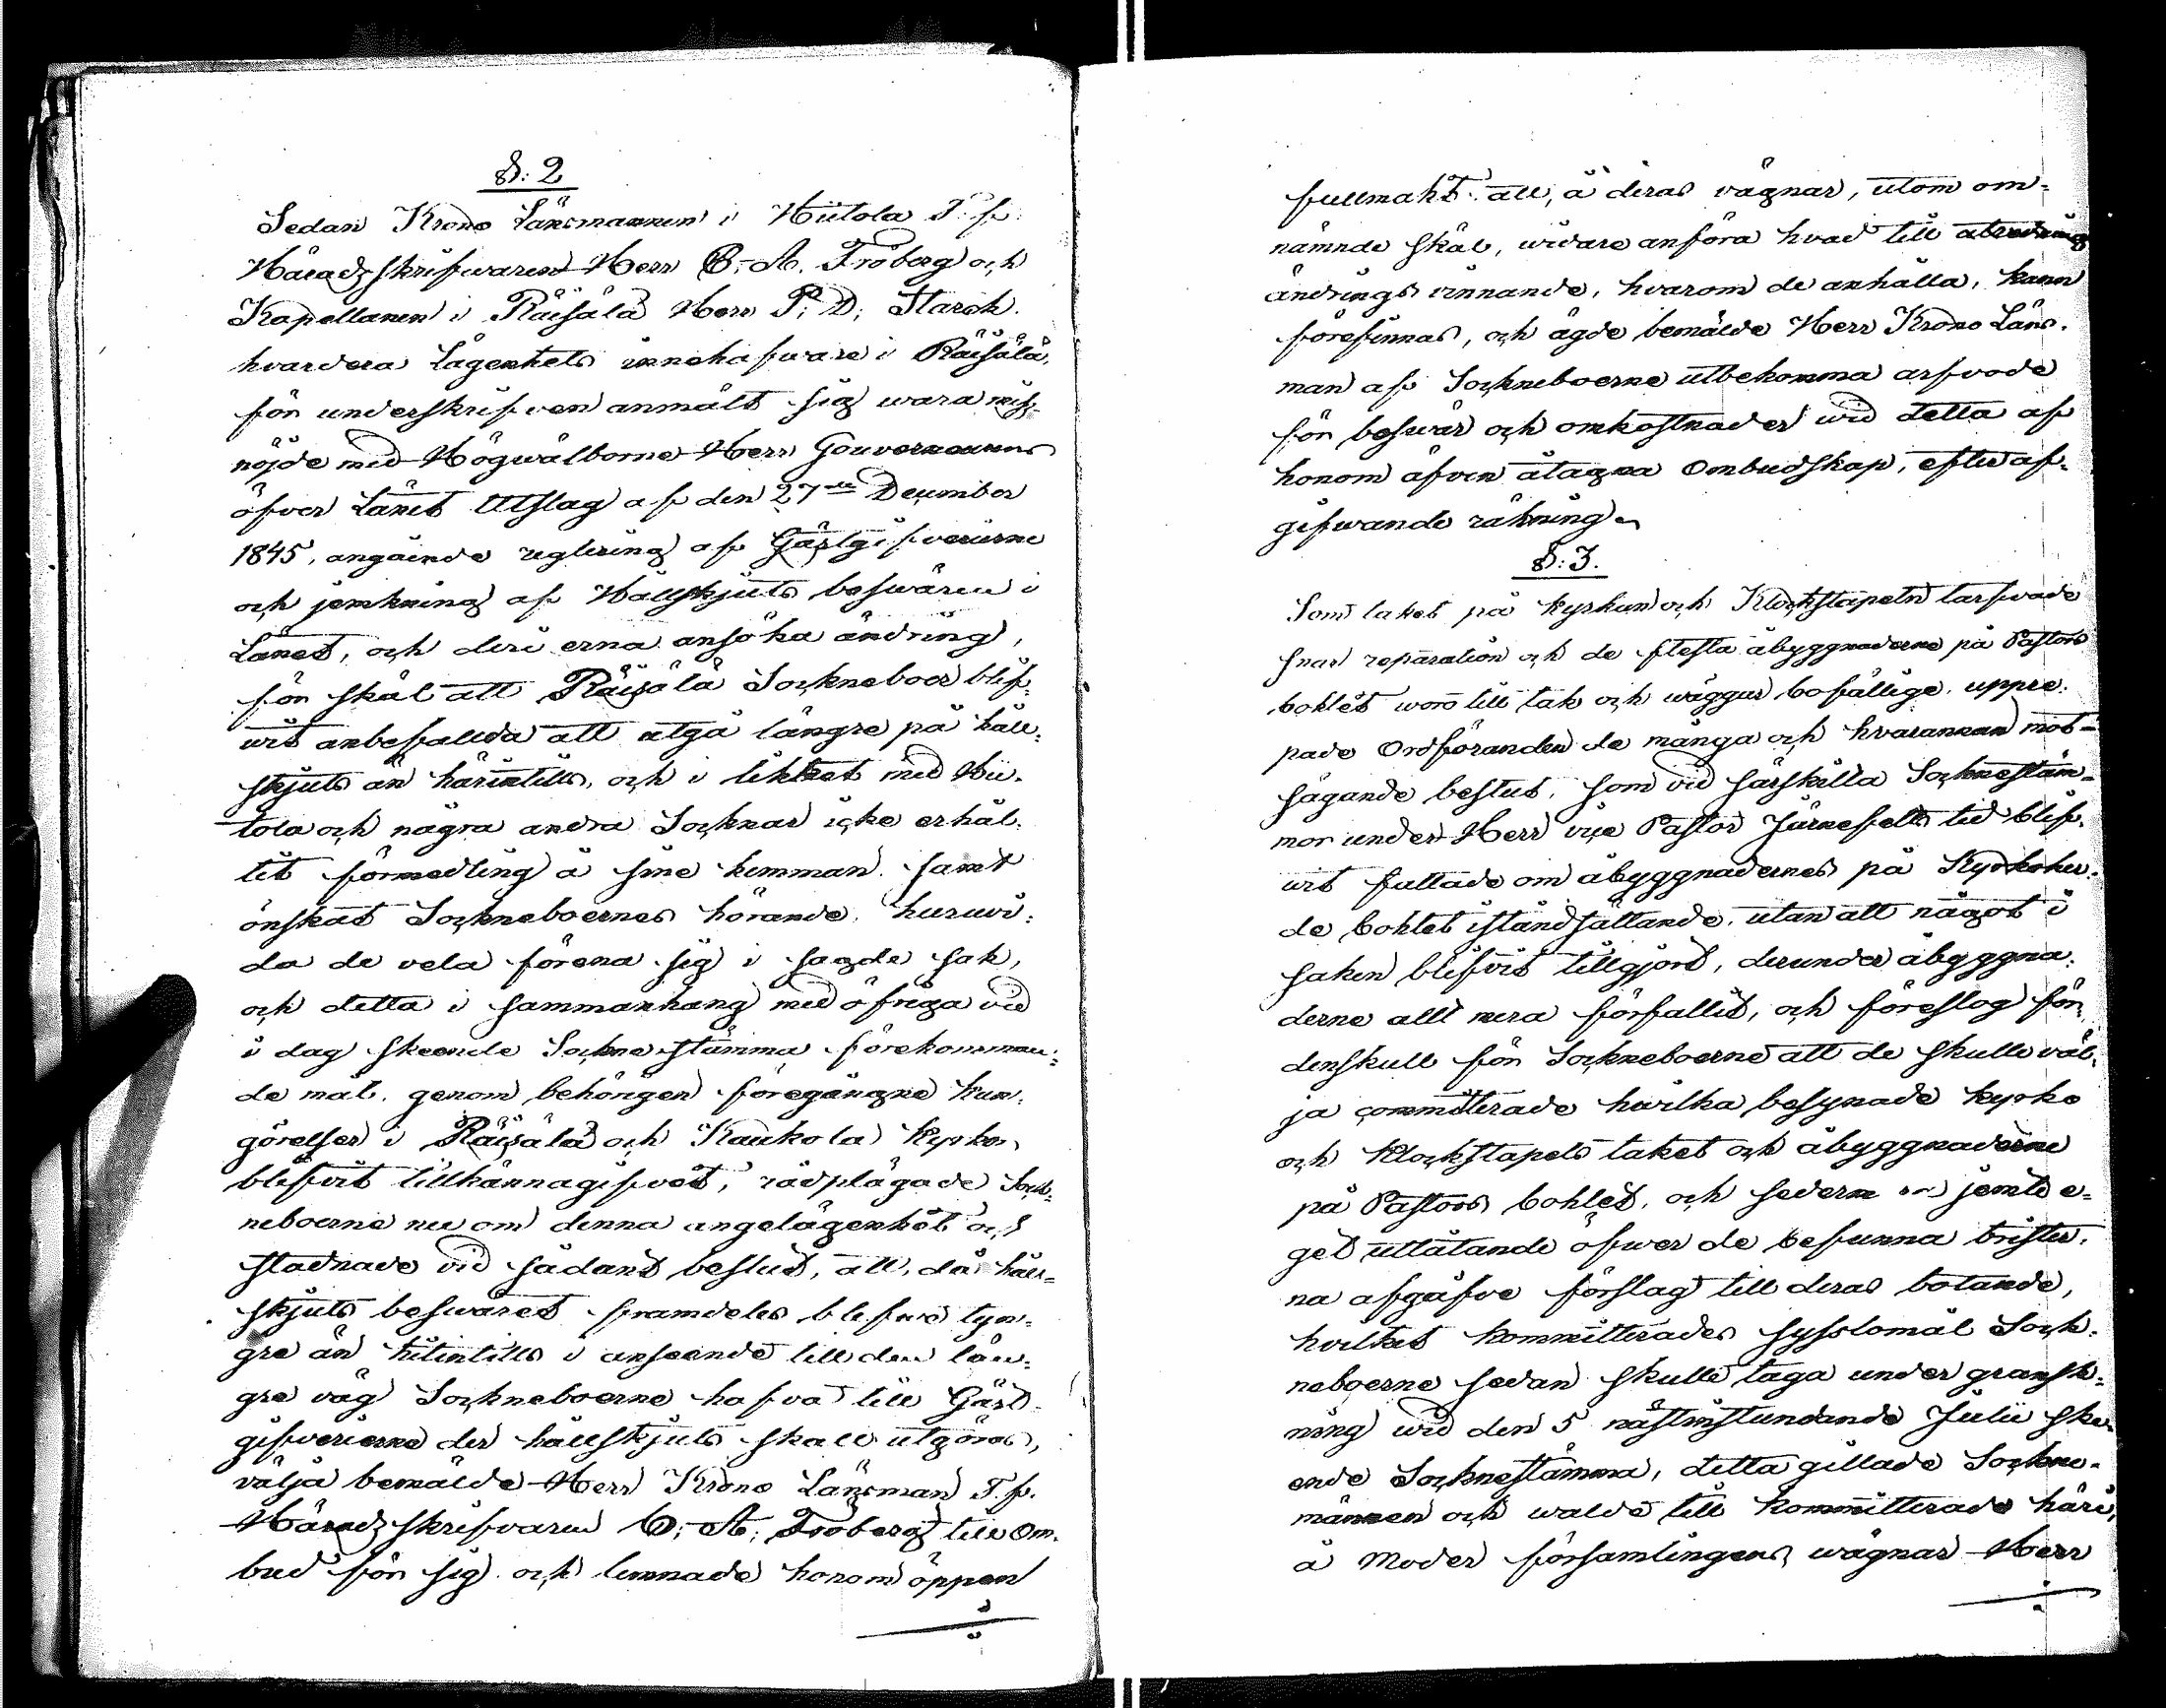 §: 2
Sedan Krono Länsmannen i Hiitola T. f.
Häradsskrifwaren Herr C. A. Fröberg och
Kapellanen i Räisälä Herr P: D; Starck.
hvardera Lägenhets innehafware i Räisälä,
för underskrifven anmält sig wara miss-
nöjde med Högwälborne Herr Gouverneurens
öfver Länet Utslag af den 27de December
1845, angående reglering af Gästgifverierne
och jemkning af Hållskjuts beswären i
Länet, och deri erna ansöka ändring,
för skäl att Räisälä Sockneboer blif-
wit anbefallda att utgå längre på håll-
skjuts än härintills, och i likhet med Hii-
tola och några andra Socknar icke erhål-
lit förmedling å sine hemman. samt
önskat Sockneboernes hörande, huruvi-
da de vela förena sig i sagde sak,
och detta i sammanhang med öfriga vid
i dag skeende Sockne stämma förekomman-
de mål. genom behörigen föregångne kun-
görelser i Räisälä och Kaukola Kyrkor,
blifvit tillkännagifvet, rådplägade Sock-
neboerne nu om denna angelägenhet och
stadnade vid sådant beslut, att, då håll-
skjuts beswäret framdeles blefwe tyn-
gre än hitintills i anseende till den län-
gre väg Sockneboerne hafva till Gäst-
gifverierne der hållskjuts skall utgöras,
välja bemälde Herr Krono Länsman T. f.
Häradsskrifvaren C; A; Fröberg till Om-
bud för sig och lemnade honom öppen
fullmakt att, å deras vägnar, utom om-
nämnde skäl, widare anföra hvad till
ändrings vinnande, hvarom de anhålla, kann
förefinnas, och ägde bemälde Herr Krono Läns-
man af Sockneboerne utbekomma arfvode
för beswär och omkostnader wid detta af
honom äfven åtagna Ombudskap, efter af-
gifwande räkning.
§: 3.
Som taket på kyrkan och Klockstapeln tarfvade
snar reparation och de flesta åbyggnaderne på Pastors
bohlet woro till tak och wäggar bofällige, uppre-
pade Ordföranden de många och hvarannan mot-
sägande beslut, som vid särskilta Socknestäm-
mor under Herr vice Pastor Järnefelts tid blif-
wit fattade om åbyggnadernes på Kyrkoher-
de bohlet iståndsättande, utan att något i
saken blifvit tillgjord, derunder åbyggna-
derne allt mera förfallit, och föreslog för-
denskull för Sockneboerne att de skulle väl-
ja committerade hwilka besynade kyrko
och Klockstapels taket och åbyggnaderne
på Pastors bohlet, och sederme jemte e-
get utlåtande öfwer de befunna brister-
na afgåfve förslag till deras botande,
hvilket kommitterades sysslomål Sock-
neboerne sedan skulle taga under gransk-
ning wid den 5 nästinstundande Julii ske-
ende Socknestämma, detta gillade Sockne-
männen och walde till Kommitterade häri,
å Moder församlingens wägnar Herr